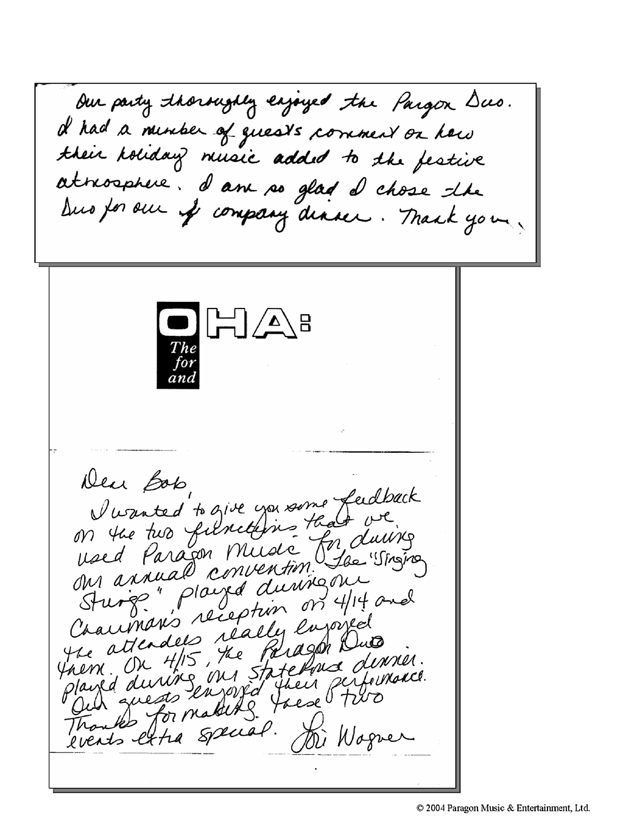 Our party thoroughly enjoyed the Pargon Duo.
I had a number of guests comment on how
their holiday music added to the festive
atmosphere. I am so glad I chose the
Duo for our company dinner. Thank you.
OHA:
The
for
and
Dear Bob,
I wanted to give you some feedback
on the two functions that we
used Paragon Music for during
our annual convention. The "Singing
Strings" played during our
Chairman's reception on 4/14 and
the attendees really enjoyed
them. On 4/15, the Paragon Duo
played during our statehouse dinner.
Our guests enjoyed their performance.
Thanks for making these two
events extra special. Lori Wagner
© 2004 Paragon Music & Entertainment, Ltd.